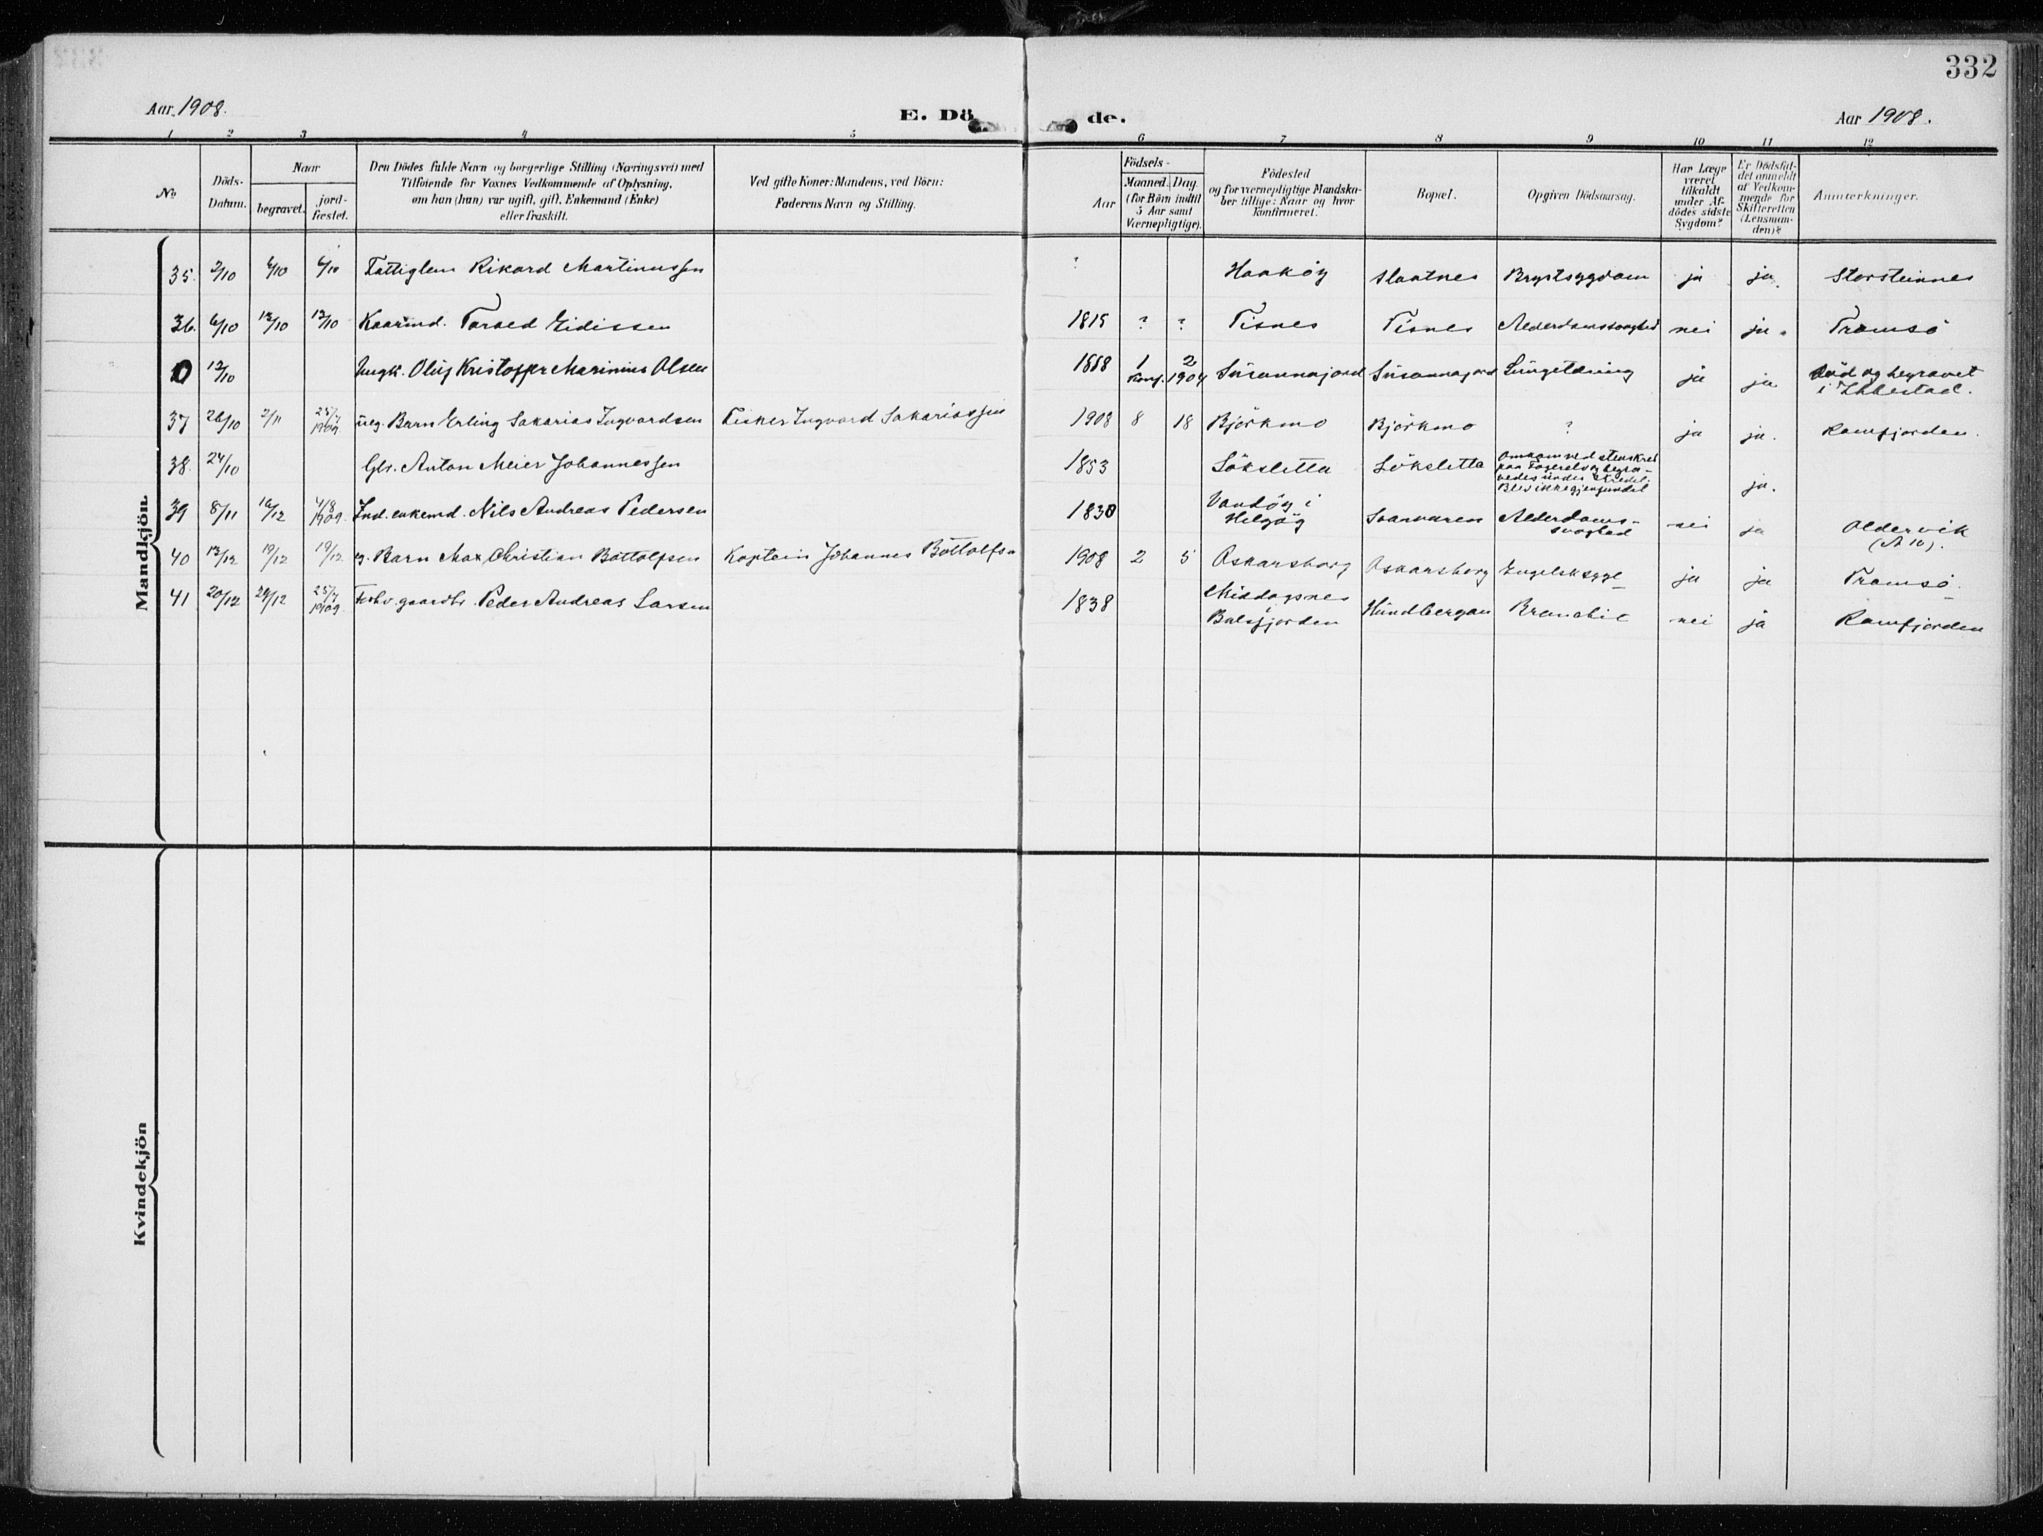 332
Aar 1908.
E. Dö de.
Aar 1908.
1 2 3 4 5 6 7 8 9 10 11 12
No
Döds-
Datum.
Naar
begravet.
jord-
fæstet.
Den Dödes fulde Navn og borgerlige Stilling (Næringsvei) med
Tilföiende for Voxnes Vedkommende af Oplysning,
om han (hun) var ugift, gift, Enkemand (Enke)
eller fraskilt.
Ved gifte Koner: Mandens, ved Börn:
Faderens Navn og Stilling.
Födsels-
Aar
Maaned. Dag
(for Börn indtil
5 Aar samt
Værnepligtige).
Födested
og for værnepligtige Mandska-
ber tillige: Naar og hvor
konfirmeret.
Bopæl.
Opgiven Dödsaarsag.
Har Læge
været
tilkaldt
under Af-
dödes sidste
Sygdom?
Er Dödsfal-
det anmeldt
af Vedkom-
mende for
Skifteretten
(Lensman-
den)?
Anmærkninger.
Mandkjön
35. 2/10 6/10 6/10 Fattiglem Rikard Martinussen ? Haaköy Slaatnes Brystsygdom ja ja. Storsteinnes
36. 6/10 12/10 12/10 Kaarmd. Tarald Eidissen 1815 ? ? Tisnes Tisnes Alderdomssvaghed nei ja. Tromsö
0 12/10 Ungk. Oluf Kristoffer Marinius Olsen 1888 1 2 Konf. 1904 Susannajord Susannajord Lungetæring ja ja. död og begravet
i Ibbestad.
37 26/10 2/11 25/7 1909 ueg. Barn Erling Sakarias Ingvardsen Fisker Ingvard Sakariassen 1908 8 18 Björkmo Björkmo ? ja ja. Ramfjorden.
38. 24/10 Gbr. Anton Meier Johannessen 1853 Löksletta Löksletta Omkom ved stenskred
paa Fagerelv og begra-
vedes under skredet.
Blev ikke gjenfundet ja.
39 8/11 16/12 4/8 1909. Ind. enkemd. Nils Andreas Pedersen 1830 Vandöy i
Helgöy Svarvaren Alderdoms-
svaghed nei ja Oldervik
(A 10).
40 12/12 19/12 19/12 g. Barn Max Christian Bottolfsen Kaptein Johannes Bottolfsen 1908 2 5 Oskarsborg Oskarsborg Engelsksyge ja ja Tromsö
41 20/12 29/12 25/7 1909. Forhv. gaardbr. Peder Andreas Larsen 1838 Middagsnes
Balsfjorden Hundbergan Bronchit nei ja Ramfjorden
Kvindekjön